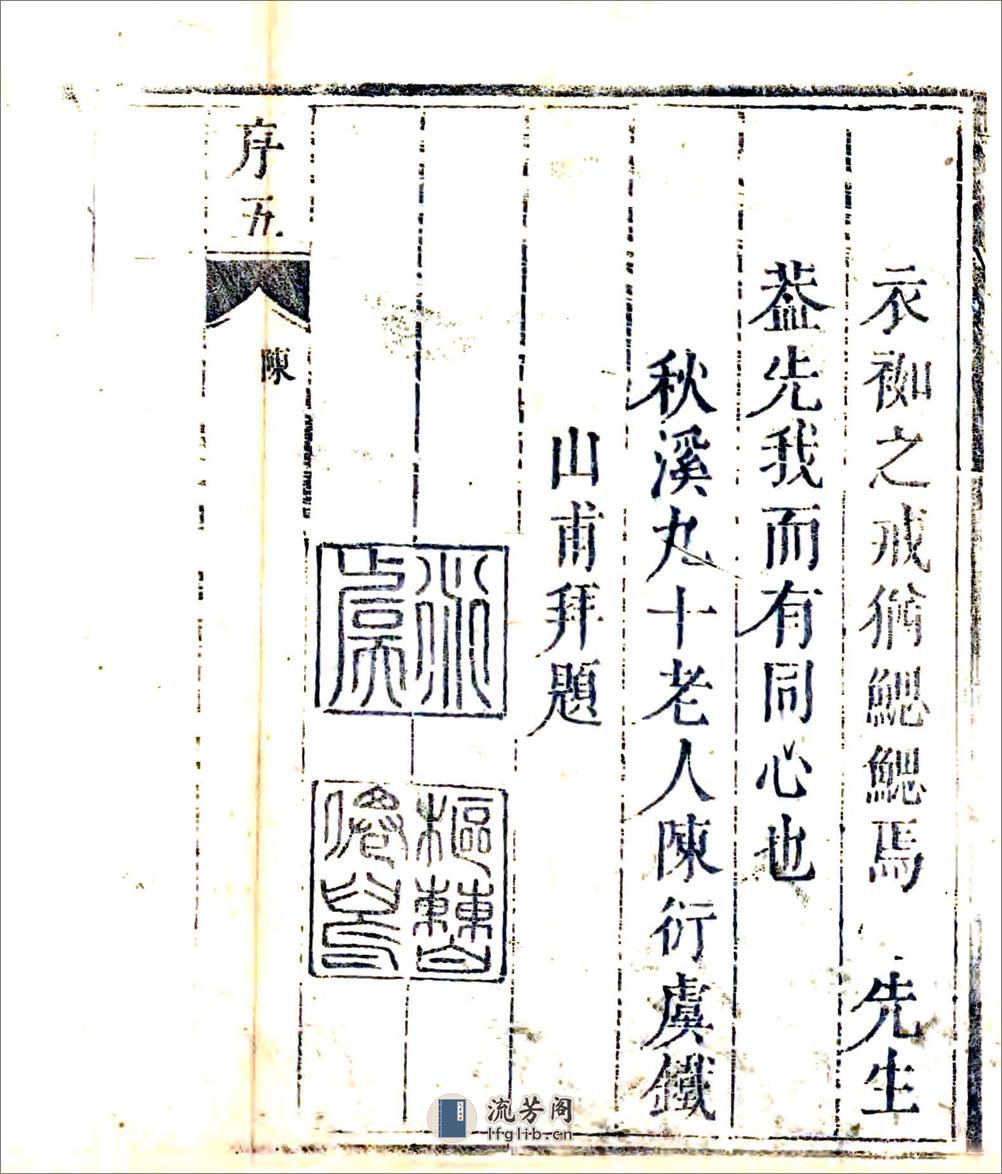 衣袽之戒猶鰓鰓焉　先生
葢先我而有同心也
秋溪九十老人陳衍虞鐵
山甫拜題
衍虞
序五
陳
流芳阁
lfglib.cn